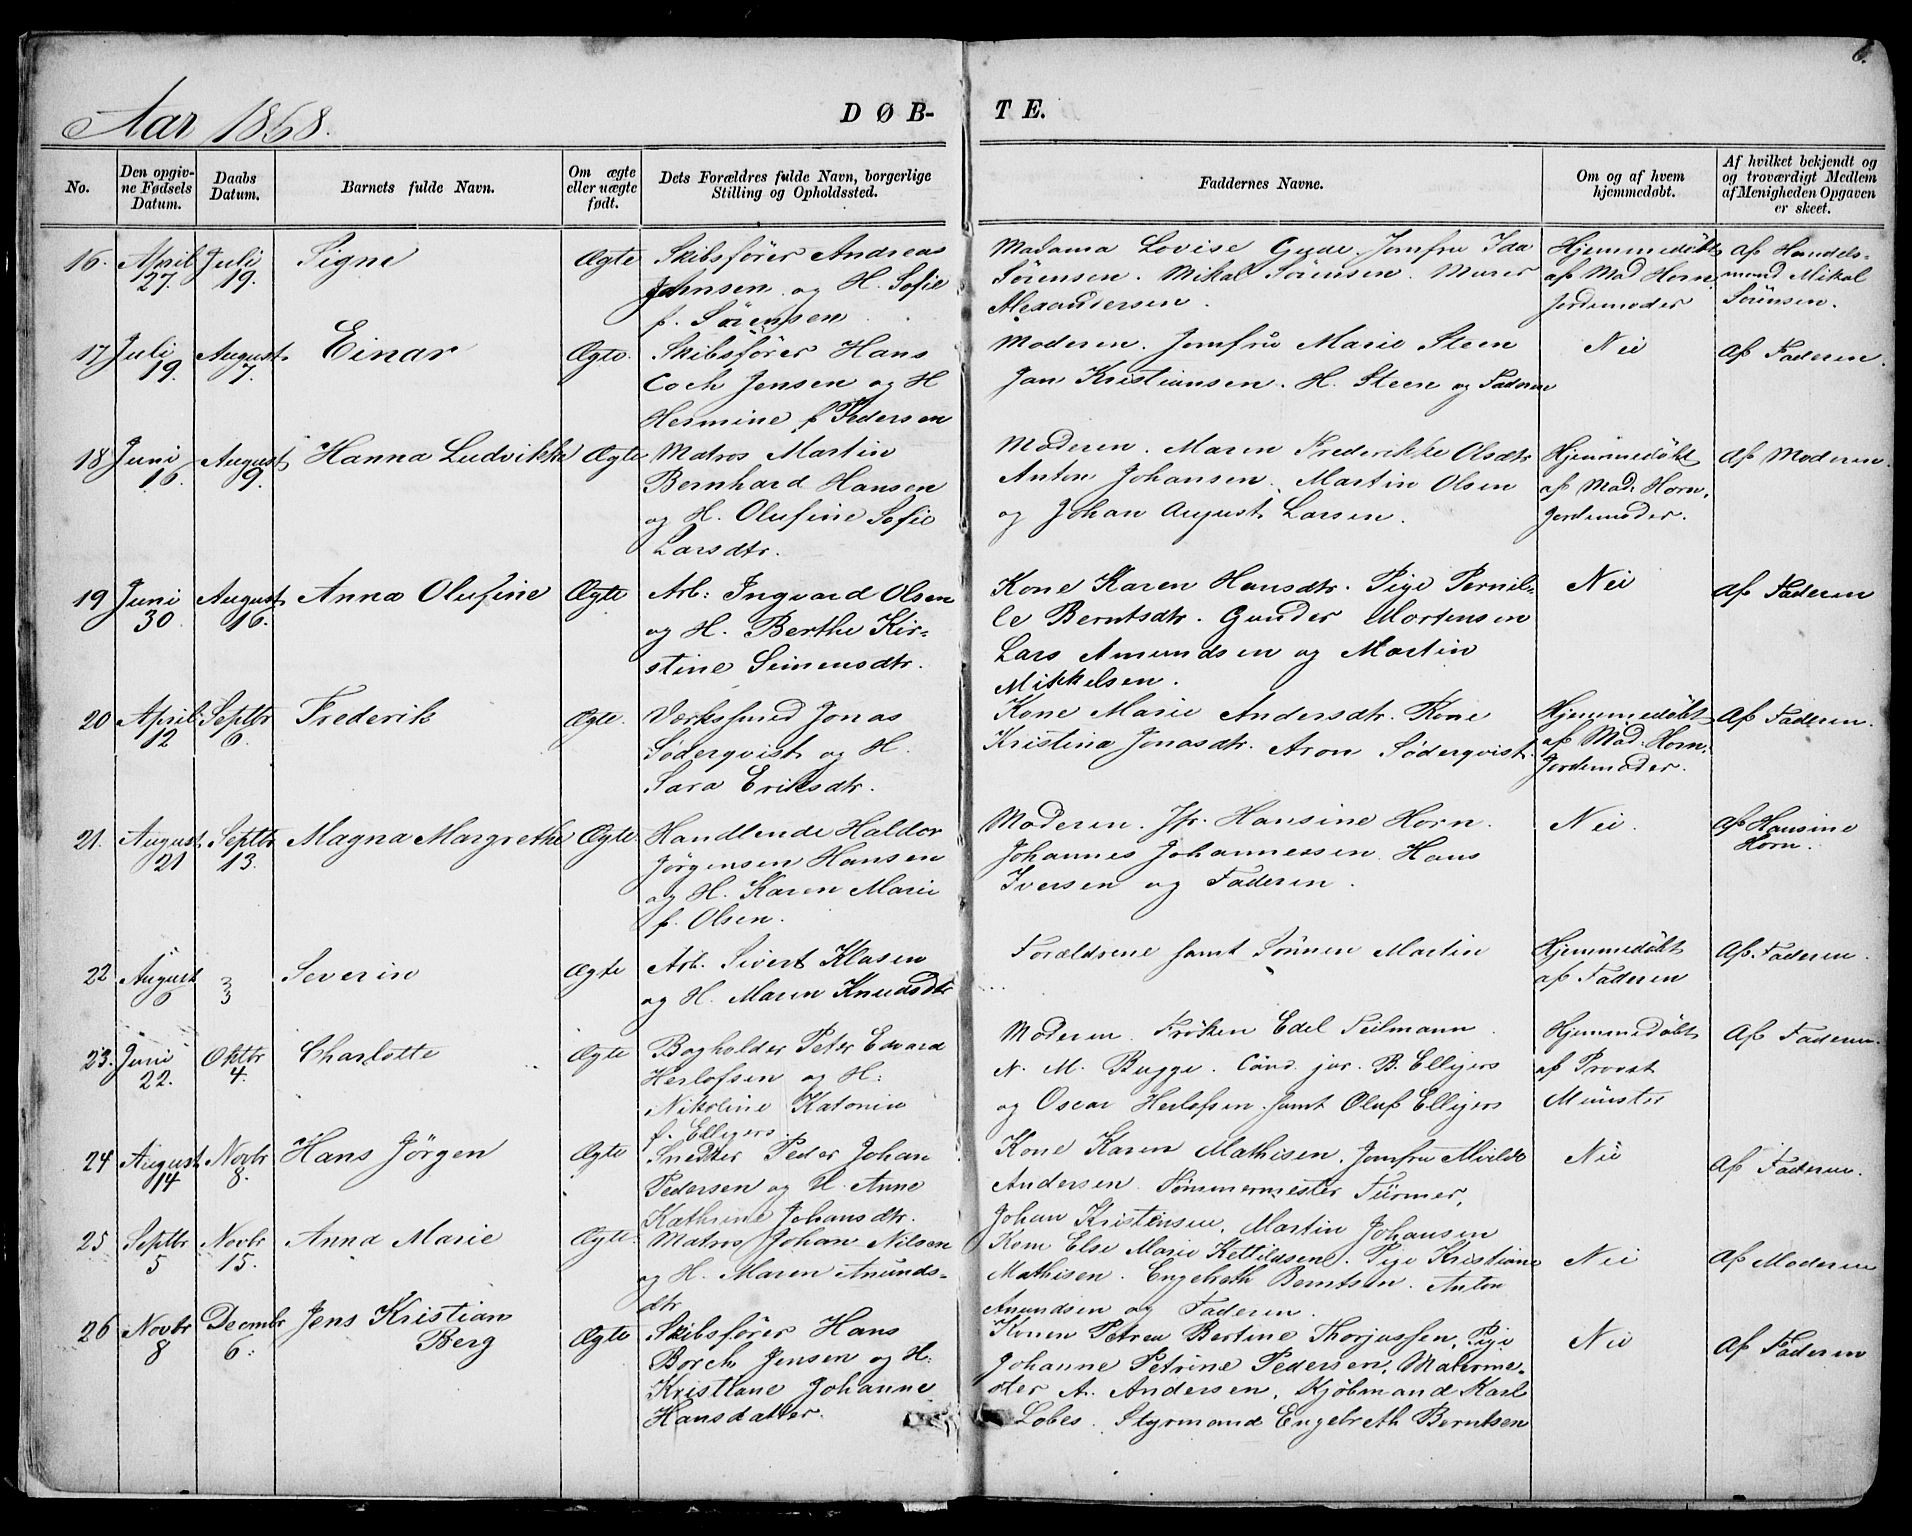 6.
Aar 1868.
DØB-
TE.
No.
Den opgiv-
ne Fødsels
Datum.
Daabs
Datum.
Barnets fulde Navn.
Om ægte
eller uægte
født.
Dets Forældres fulde Navn, borgerlige
Stilling og Opholdssted.
Faddernes Navne.
Om og af hvem
hjemmedøbt.
Af hvilket bekjendt og
og troværdigt Medlem
af Menigheden Opgaven
er skeet.
16.
April
27.
Juli
19.
Signe
Ægte
Skibsfører Andreas
Johnsen og H. Sofie
f. Sörensen
Madama Lovise Gude. Jomfru Ida
Sörensen. Mikal Sörensen. Murer
Alexandersen.
Hjemmedøbt
af Mad Horn
Jordemoder
af Handels-
mand Mikal
Sörensen.
17
Juli
19.
August
7.
Einar
Ægte.
Skibsfører Hans
Coch Jensen og H
Hermine f Pedersen
Moderen. Jomfru Marie Steen
Jan Kristiansen. H. Steen og Faderen
Nei
af Faderen.
18
Juni
16.
August
9.
Hanna Ludvikke
Ægte
Matros Martin
Bernhard Hansen
og H. Olufine Sofie
Larsdtr.
Moderen. Maren Frederikke Olsdtr
Anton Johansen. Martin Olsen
og Johan August Larsen.
Hjemmedøbt
af Mad. Horn.
Jordemoder.
af Moderen.
19
Juni
30
August
16.
Anna Olufine
Ægte
Arb: Ingvard Olsen
og H. Berthe Kir-
stine Simensdtr.
Kone Karen Hansdtr. Pige Pernil-
le Berntsdtr. Gunder Mortensen
Lars Amundsen og Martin
Mikkelsen.
Nei
af Faderen
20
April
12
Septbr
6.
Frederik
Ægte.
Værksmed Jonas
Söderqvist og H.
Sara Eriksdtr.
Kone Marie Andersdtr. Kone
Kristina Jonasdtr. Aron Söderqvist.
Hjemmedøbt
af Mad. Horn.
Jordemoder.
Af Faderen.
21.
August
21
Septbr
13.
Magna Margrethe
Ægte.
Handlende Haldor
Jörgensen Hansen
og H. Karen Marie
f. Olsen.
Moderen. Jfr. Hansine Horn.
Johannes Johannessen. Hans
Iversen og Faderen.
Nei.
af Hansine
Horn.
22
August
6
3
3
Severin
Ægte
Arb. Sivert Klasen
og H. Maren Knudsdtr
Forældrene samt Sönnen Martin
Hjemmedøbt
af Faderen
Af Faderen.
23.
Juni
22.
Oktbr
4.
Charlotte
Ægte
Bogholder Peter Edvard
Herlofsen og H:
Nikoline Katonia
f. Elligers
Moderen. Fröken Edel Seilmann.
N. M. Bugge. Cand. jur. B. Elligers
og Oscar Herlofsen samt Oluf Elligers
Hjemmedøbt
af Provst
Münster
Af Faderen.
24
August
14
Novbr
8.
Hans Jörgen
Ægte
Snedker Peder Johan
Pedersen og H. Anne
Kathrine Johansdtr.
Kone Karen Mathisen. Jomfru Alvilde
Andersen. Tömmermester Türmer,
Johan Kristensen. Martin Johansen
Nei
af Faderen.
25
Septbr
5
Novbr
15.
Anna Marie
Ægte.
Matros Johan Nilsen
og H. Maren Anunds-
dtr
Kone Else Marie Kettildsen. Pige Kristiane
Mathisen. Engebreth Berntsen. Anton
Anundsen og Faderen.
Nei
af Moderen
26
Novbr
8
Decembr
6.
Jens Kristian
Berg
Ægte
Skibsfører Hans
Borch Jensen og H.
Kristiane Johanne
Hansdatter.
Konen Petrea Bertine Thorjussen, Pige
Johanne Petrine Pedersen, Malerme-
ster A. Andersen, Kjöbmand Karl
Lobes. Styrmand Engebreth Berntsen
Nei
af Faderen